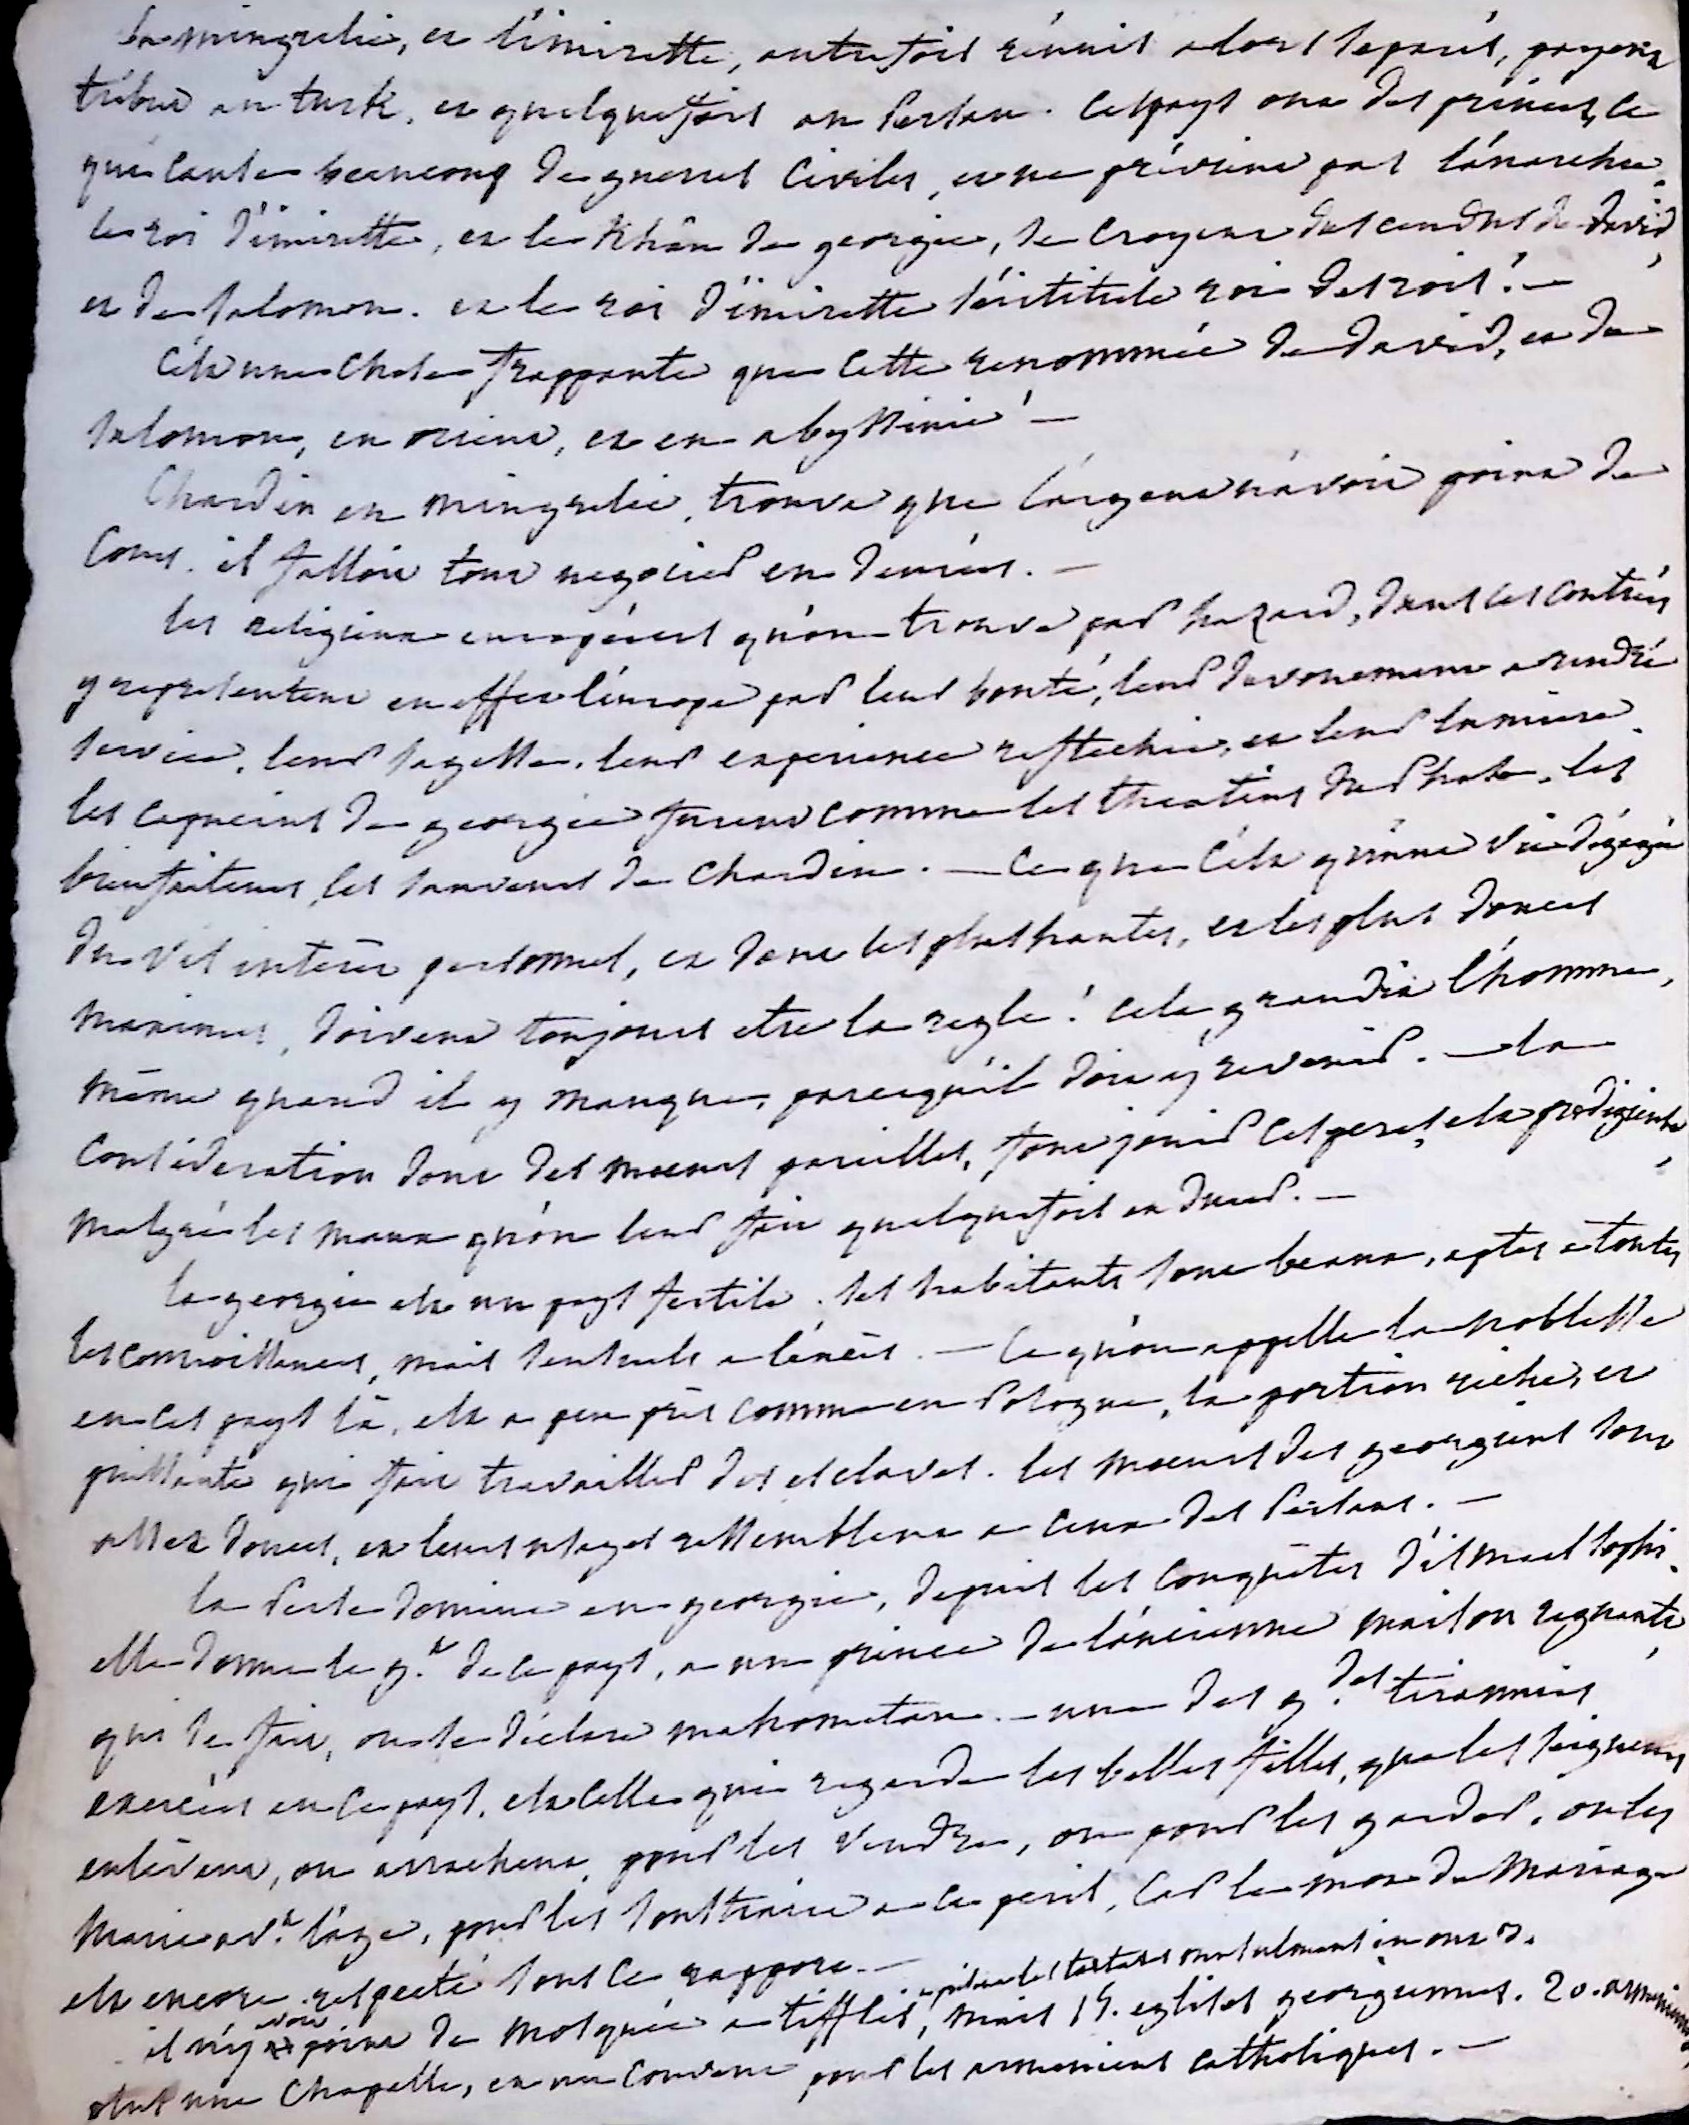 la mingrelie, et l'imirette, autrefois réunis alors separés, payent
tribut au turk, et quelquefois au Persan. ces pays ont des princes, ce
qui cause beaucoup de guerres civiles, et ne prévient pas l'anarchie.
le roi d'imirette, et le khân de georgie, se croyent descendus de david,
et de salomon. et le roi d'imirette s'intitule roi des rois! —
C'est une chose frappante que cette renommée de david, et de
salomon, en orient, et en abyssinie! —
Chardin en mingrelie, trouva que l'argent n'avoit point de
cours. il falloit tout negocier en denrées. —
les religieux européens qu'on trouve par hazard, dans ces contrées
y representent en effet l'europe par leur bonté, leur devouement a rendre
service, leur sagesse, leur experience reflechie, et leur lumiere.
les capucins de georgie furent comme les theatins du Phase, les
bienfaiteurs, les sauveurs de Chardin. — Ce que c'est qu'une vie dégagée
du vil intérêt personnel, et dont les plus hautes, et les plus douces
maximes, doivent toujours etre la regle! cela grandit l'homme,
même quand il y manque, parcequ'il doit y revenir. — la
consideration dont des moeurs pareilles, font jouir ces peres, est prodigieuse,
malgré les maux qu'on leur fait quelquefois endurer. —
la georgie est un pays fertile. ses habitants sont beaux, aptes a toutes
les connoissances, mais sensuels a l'éxcès. — Ce qu'on appelle la noblesse
en ces pays là, est a peu près comme en Pologne, la portion riche, et
puissante qui fait travailler des esclaves. les moeurs des georgiens sont
assez douces, et leurs usages ressemblent a ceux des Persans. —
la Perse domine en georgie, depuis les conquêtes d'ismael sophi.
elle donne le g.t de ce pays, a un prince de l'ancienne maison regnante,
qui se fait, ou se déclare mahometan. — une des g.des tirannies
exercées en ce pays, est celle qui regarde les belles filles, que les seigneurs
enlèvent, ou arrachent, pour les vendre, ou pour les garder. on les
marie av.t l'age, pour les soustraire a ce peril, car le noeud de mariage
est encore respecté sous ce rapport. —
il n'y avoit point de mosquée a tifflis, mais 14. eglises georgiennes. 20. armeniennes,
et une chapelle, et un couvent pour les armeniens catholiques. —